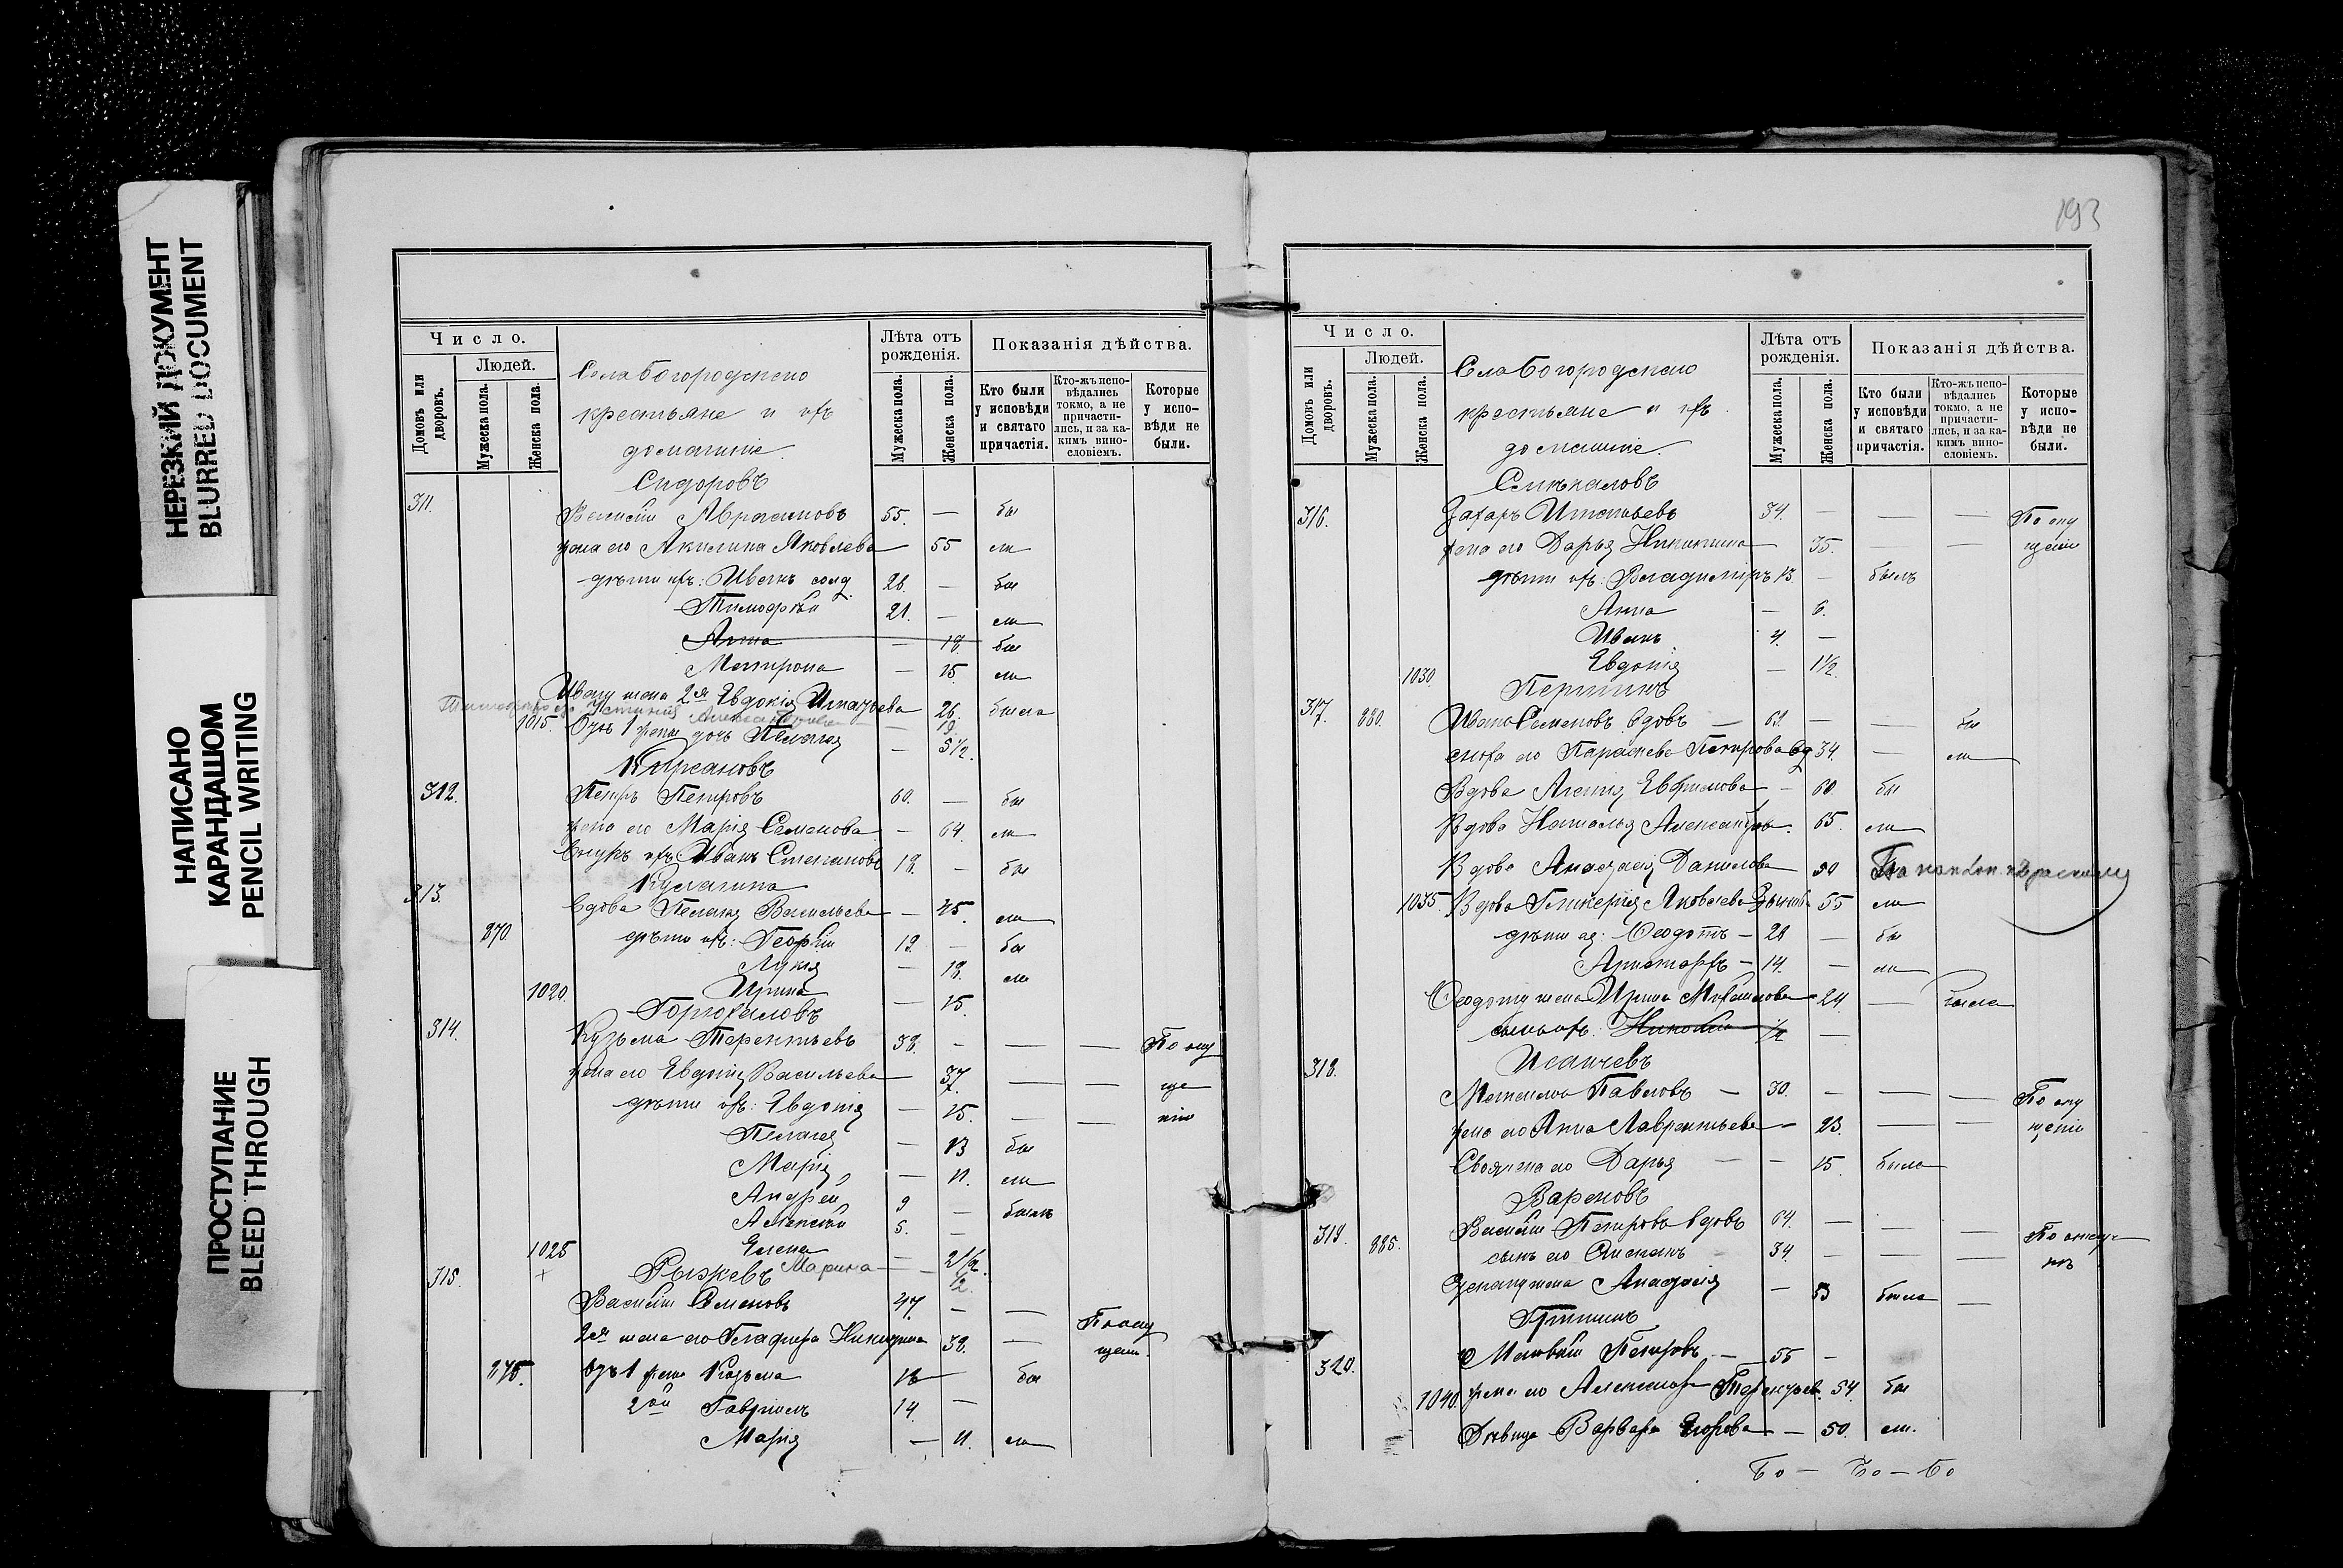 НЕРЕЗКИЙ ДОКУМЕНТ
BLURRED DOCUMENT
НАПИСАНО
КАРАНДАШОМ
PENCIL WRITING
ПРОСТУПАНИЕ
BLEED THROUGH
Число.
Домовъ или дворовъ.
Людей.
Мужеска пола.
Женска пола.
Села Богородскаго
крестьяне и ихъ
домашніе.
Лѣта отъ рожденія.
Мужеска пола.
Женска пола.
Показанія дѣйства.
Кто были у исповѣди и святаго причастія.
Кто-жъ исповѣдались токмо, а не причастились, и за какимъ винословіемъ.
Которые у исповѣди не были.
Сидоровъ
311. Василій Аврамовъ 55. — бы
жена его Акилина Яковлева — 55 ли
дѣти ихъ: Иванъ солд 28. — бы
Тимофей 21. — ли
Анна — 18. бы
Матрона — 15. ли
Ивану жена 2я Евдокія Игнатьева 26. была
Устинія 19
1015. Отъ 1 жены дочь Пелагея — 5½.
Кирсановъ
312. Петръ Петровъ 60. — бы
жена его Марія Семенова — 64. ли
внукъ ихъ Иванъ Степановъ 18. — бы
Кулагина
313. вдова Пелагея Васильева — 45. ли
870. дѣти ихъ: Георгій 19. — бы
Лукія — 18. ли
1020. Ирина — 15.
Горюхаловъ
314. Кузьма Терентьевъ 38. — — — По опу
жена его Евдокія Васильева 37. — — ще
дѣти ихъ: Евдокія — 15. — — нію
Пелагея — 13 бы
Марія — 11. ли
Андрей 9 — былъ
Алексѣй 5. —
1025 Елена — 2½.
+ Марина — ½.
Рыжевъ
315. Василій Семеновъ 47. — —
По опу
2ая жена его Глафира Никитина 38. —
щен.
875. отъ 1 жены Козьма 18 — бы
2ой Гавріилъ 14. —
Марія — 11. ли
193
Число.
Домовъ или дворовъ.
Людей.
Мужеска пола.
Женска пола.
Села Богородскаго
крестьяне и ихъ
домашніе.
Лѣта отъ рожденія.
Мужеска пола.
Женска пола.
Показанія дѣйства.
Кто были у исповѣди и святаго причастія.
Кто-жъ исповѣдались токмо, а не причастились, и за какимъ винословіемъ.
Которые у исповѣди не были.
316. Захаръ Игнатьевъ 34. — — — По опу
жена его Дарья Никитина — 35. — — щенію
дѣти ихъ: Владиміръ 13. — былъ
Анна — 6.
Иванъ 4. —
1030 Евдокія — 1½.
Першинъ
317. 880. Иванъ Семеновъ вдовъ — 61 — — бы
сноха его Параскева Петрова вд 34. — ли
Вдова Агаѳія Евфимова — 60 бы
Вдова Наталья Александров. 65. ли
Вдова Анастасія Данилова 50
1035. Вдова Гликерія Яковлева 55 ли
дѣти ея: Ѳеодотъ — 28 — бы
Аристархъ — 14. — ли
Ѳеодоту жена Ирина Михайлова 24 — была
сынъ ихъ: Николай ½ —
Исаичевъ
318. Павловъ — 30. — — — По опу
жена его Анна Лаврентьева — 23. — — щенію
его Дарья — — 15. была
Вареновъ
319. 885. Василій Петровъ вдовъ 64. — — По опущ
сынъ его Степанъ 34. — — —
жена Анастасія — 33 была —
320. Матвѣй Петровъ — 55 —
1040. жена его Александра 54. бы
Дѣвица Варвара Егорова — 50. ли.
Бо — Бо — Бо